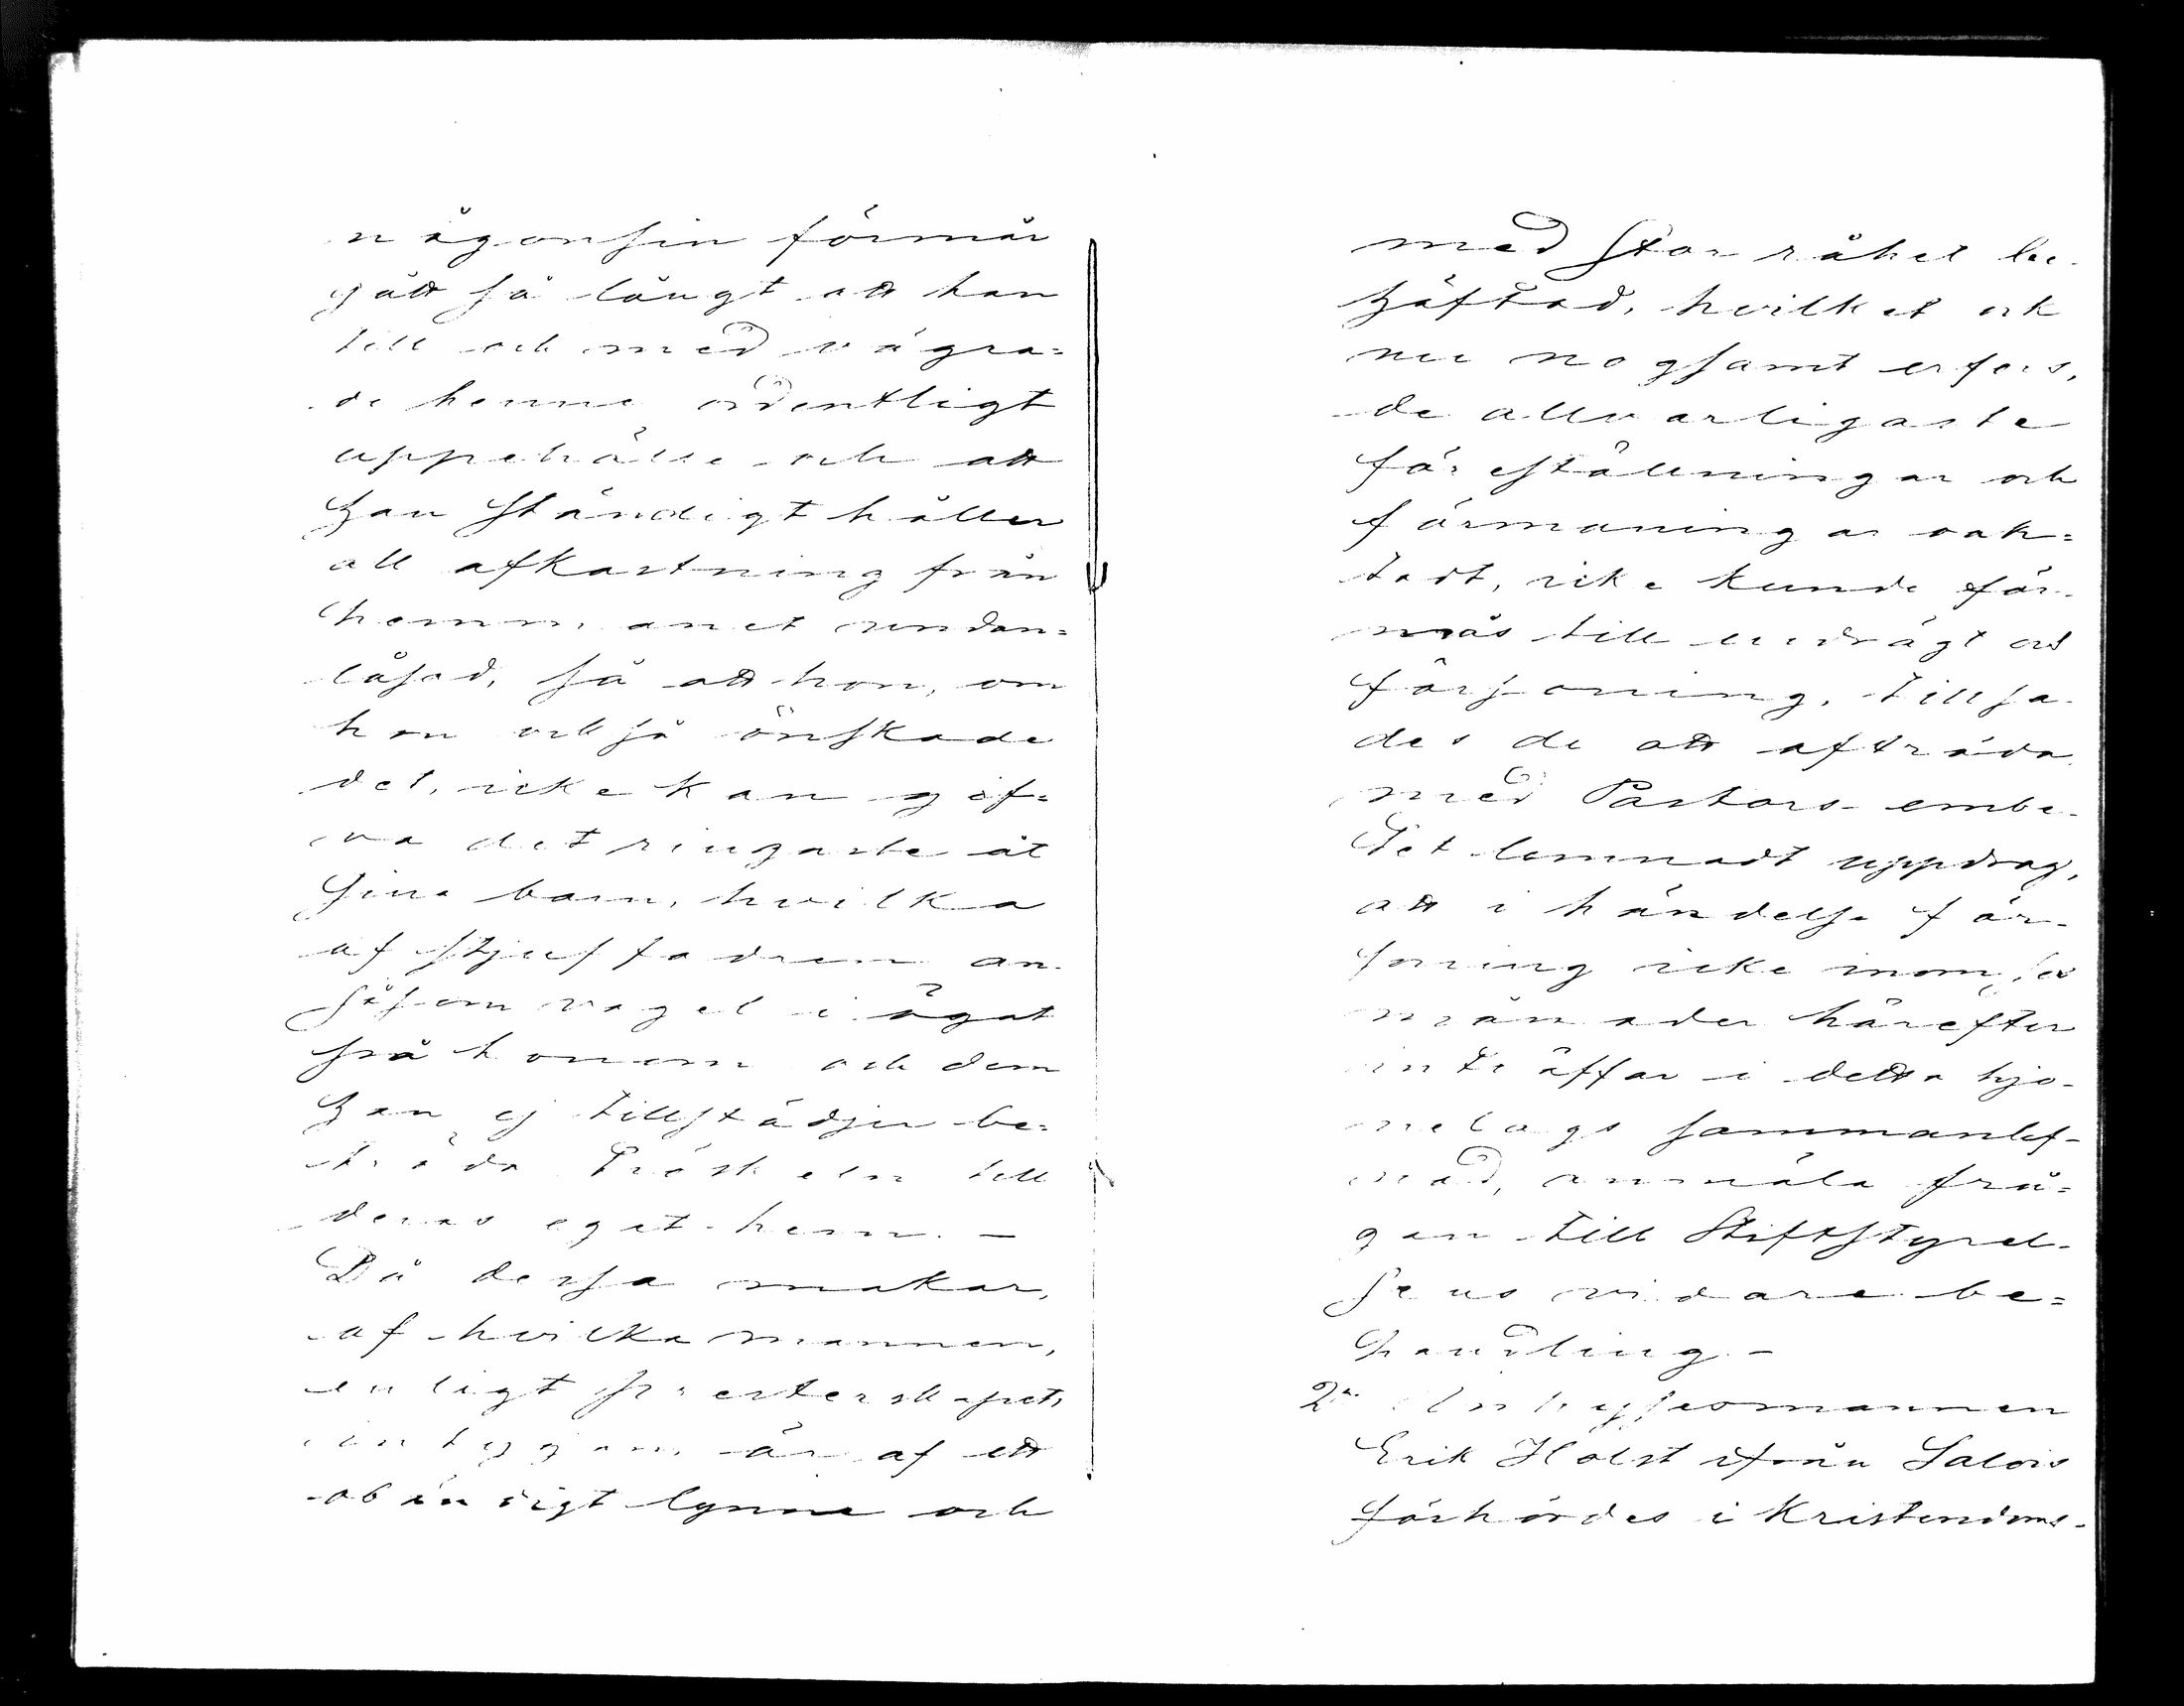 någonsin förmår
gått så långt att han
till och med vägra=
de henne ordentligt
uppehälle och att
han ständigt håller
all afkastning från
hemmanet undan=
låsad, så att hon, om
hon ock så önskade
det, icke kan gif=
va det ringaste åt
sina barn, hvilka
af stjuffadren an-
såsom nagel i ögat
på honom och dem
han ej tillstädjer be-
träda tröskeln till
deras eget hem. –
Då dessa makar,
af hvilka mannen,
enligt presterskapets
intygan, är af ett
obändigt lynne och
med stor råhet be-
häftad, hvilket ock
nu nogsamt erfors,
de allvarligaste
föreställningar och
förmaningar oak=
tadt, icke kunde för-
mås till endrägt och
försoning, tillsa-
des de att afträda
med Pastors-embe-
tet lemnadt uppdrag,
att i händelse för-
soning icke inom sex
månader härefter
inträffar i detta hjo-
nelags sammanlef-
nad, anmäla frå=
gan till Stiftstyrel-
sens vidare be=
handling. –
2o Inhysesmannen
Erik Holst ifrån Salois
förhördes i Kristendoms-